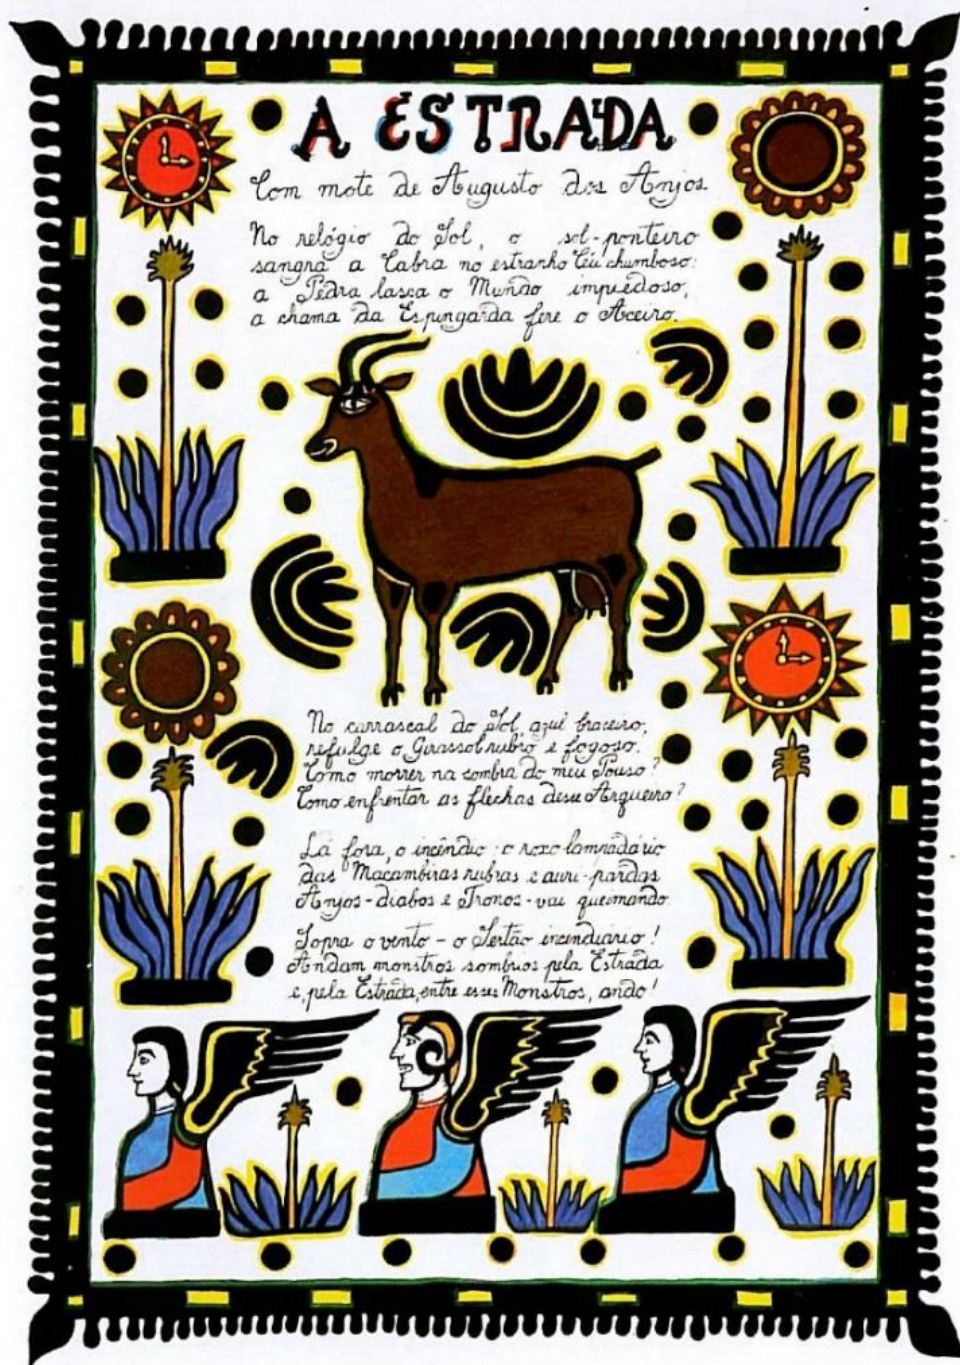 A ESTRADA
Com mote de Augusto dos Anjos.
No relógio do Sol, o sol-ponteiro
sangra a Cabra no estranho Céu chumboso:
a Pedra lasca o Mundo impiedoso,
a chama da Espingarda fere o Aceiro.
No carrascal do Sol, azul braseiro,
refulge o Girassol rubro e fogoso.
Como morrer na sombra do meu Pouso?
Como enfrentar as flechas desse Arqueiro?
Lá fora, o incêndio: o roxo lampadário
das Macambiras rubras e auri-pardas
Anjos-diabos e Tronos-vai queimando.
Sopra o vento - o Sertão incendiário!
Andam monstros sombrios pela Estrada
e, pela Estrada, entre esses Monstros, ando!